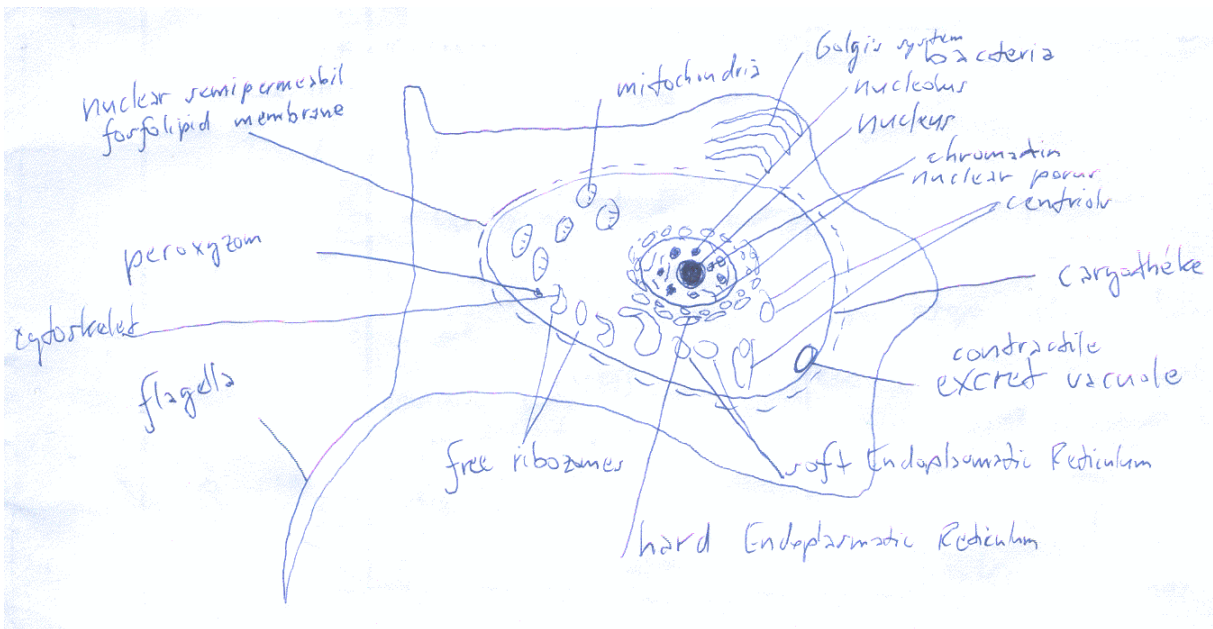 nuclear semipermeabil
fosfolipid membrane
mitochondria
Golgis system
bacteria
nucleolus
nucleus
chromatin
nuclear porus
centriolu
peroxyzom
cytoskelet
flagella
caryothéke
contractile
excret vacuole
free ribozomes
soft Endoplasmatic Reticulum
hard Endoplasmatic Reticulum